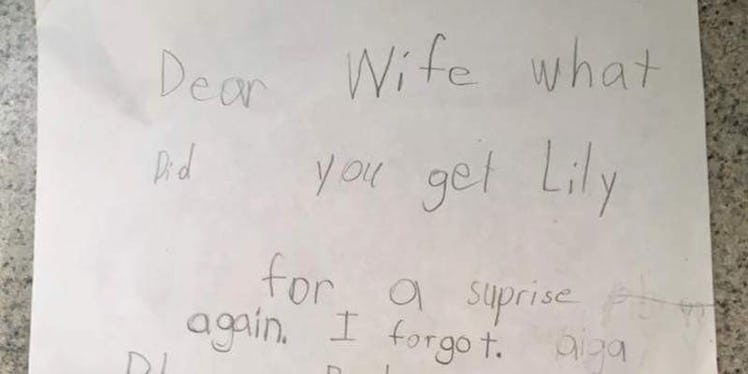 Dear Wife what
Did you get Lily
for a suprise
again. I forgot.